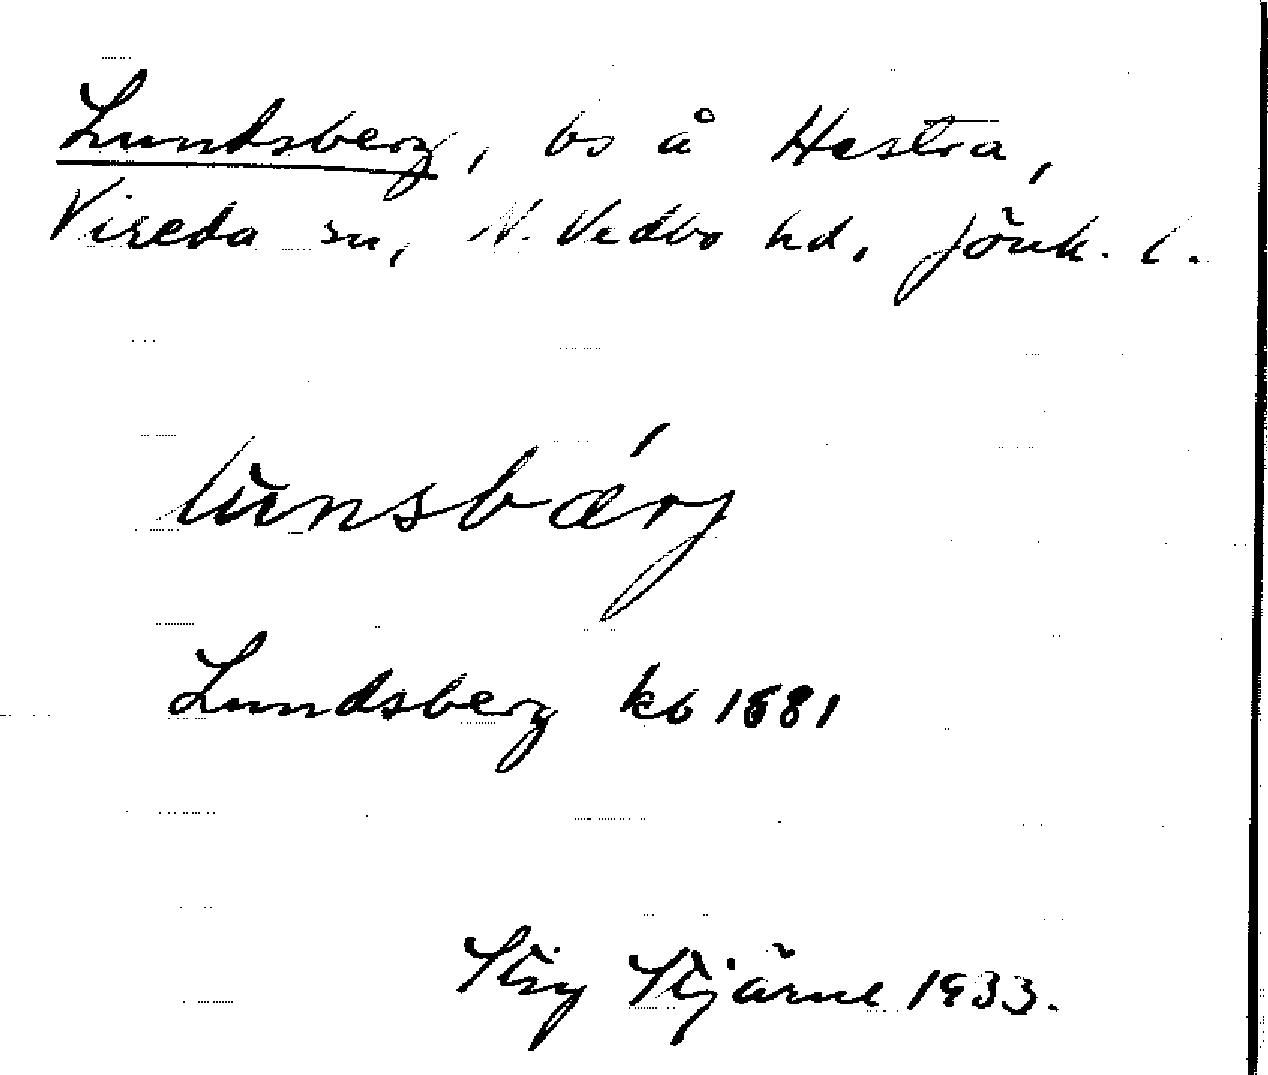 Lundsberg, bs å Hestra,
Vireda sn, N. Vedbo hd, Jönk. l.
lùnsbǽrj
Lundsberg kb 1881
Stig Stjärne 1933.